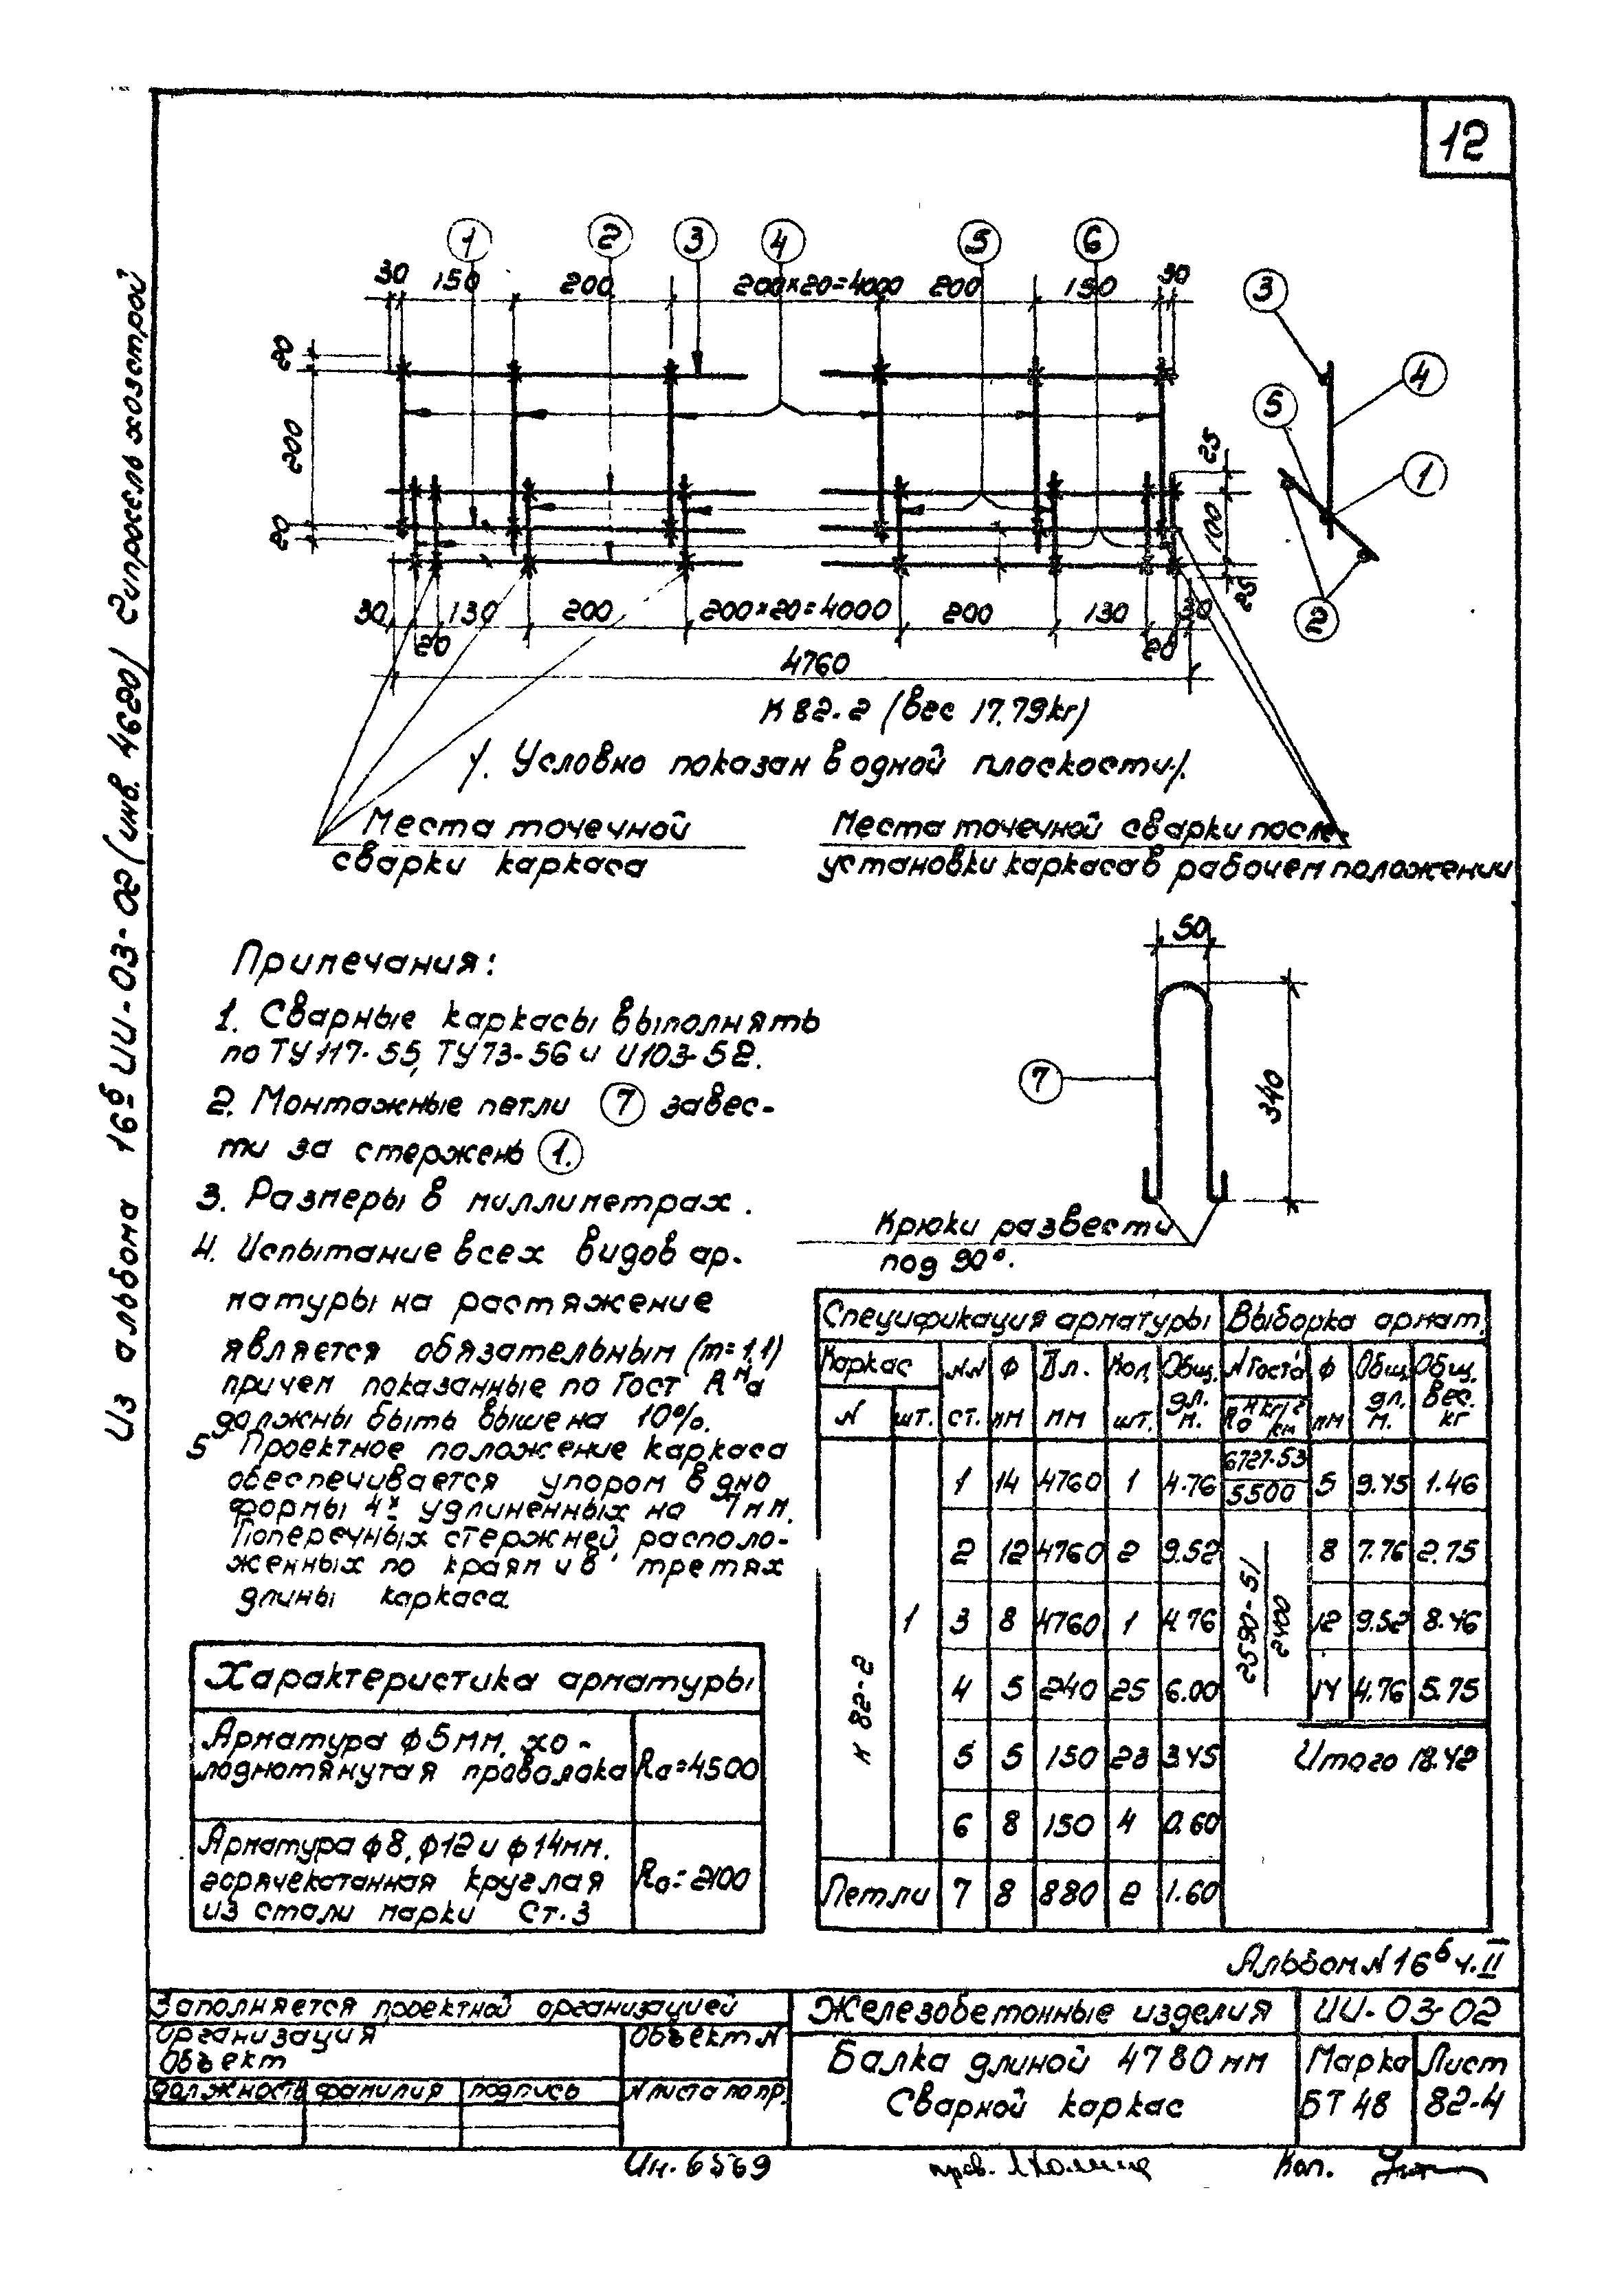 12
1 2 3 4 5 6
30 150 200 200×20=4000 200 150 30
20
200
20
3
4
5
1
2
25
100
25
30 130 200 200×20=4000 200 130 30
20 20
4760
К 82-2 (вес 17.79kг)
/. Условно показан в одной плоскости./
Места точечной
сварки каркаса
Места точечной сварки после
установки каркаса в рабочем положении
Примечания:
1. Сварные каркасы выполнять
по ТУ 117-55, ТУ 73-56 и И103-52.
2. Монтажные петли 7 завес-
ти за стержень 1.
3. Размеры в миллиметрах.
4. Испытание всех видов ар-
матуры на растяжение
является обязательным (m=1,1)
причем показанные по Гост Rнa
должны быть выше на 10%.
5 Проектное положение каркаса
обеспечивается упором в дно
формы 4х удлиненных на 7мм.
Поперечных стержней располо-
женных по краям и в третях
длины каркаса.
50
340
7
Крюки развести
под 90°.
Характеристика арматуры
Арматура ф5мм. хо-
лоднотянутая проволака Ra=4500
Арматура ф8, ф12 и ф14мм.
горячекатанная круглая
из стали марки Ст.3 Ra=2100
Спецификация арматуры Выборка армат.
Каркас NN Ф Дл. Кол. Общ. N Госта Ф Общ. Общ.
N шт. ст. мм мм шт. дл. м. Rнa кг/см2 мм дл. м. Вес. кг
К 82-2 1
1 14 4760 1 4.76 6727-53/5500 5 9.45 1.46
2 12 4760 2 9.52 2590-51/2400 8 7.76 2.75
3 8 4760 1 4.76 12 9.52 8.46
4 5 240 25 6.00 14 4.76 5.75
5 5 150 23 3.45 Итого 18.42
6 8 150 4 0.60
Петли 7 8 880 2 1.60
Альбом N 16б ч. II
Заполняется проектной организацией
организация
объект
Объект N
должность фамилия подпись N листа по пр.
Железобетонные изделия ИИ-03-02
Балка длиной 4780 мм
Сварной каркас
Марка Лист
БТ 48 82-4
Ин. 6569
пров.
Коп.
Из альбома 16б ИИ-03-02 (инв. 4620) Гипросельхозстрой